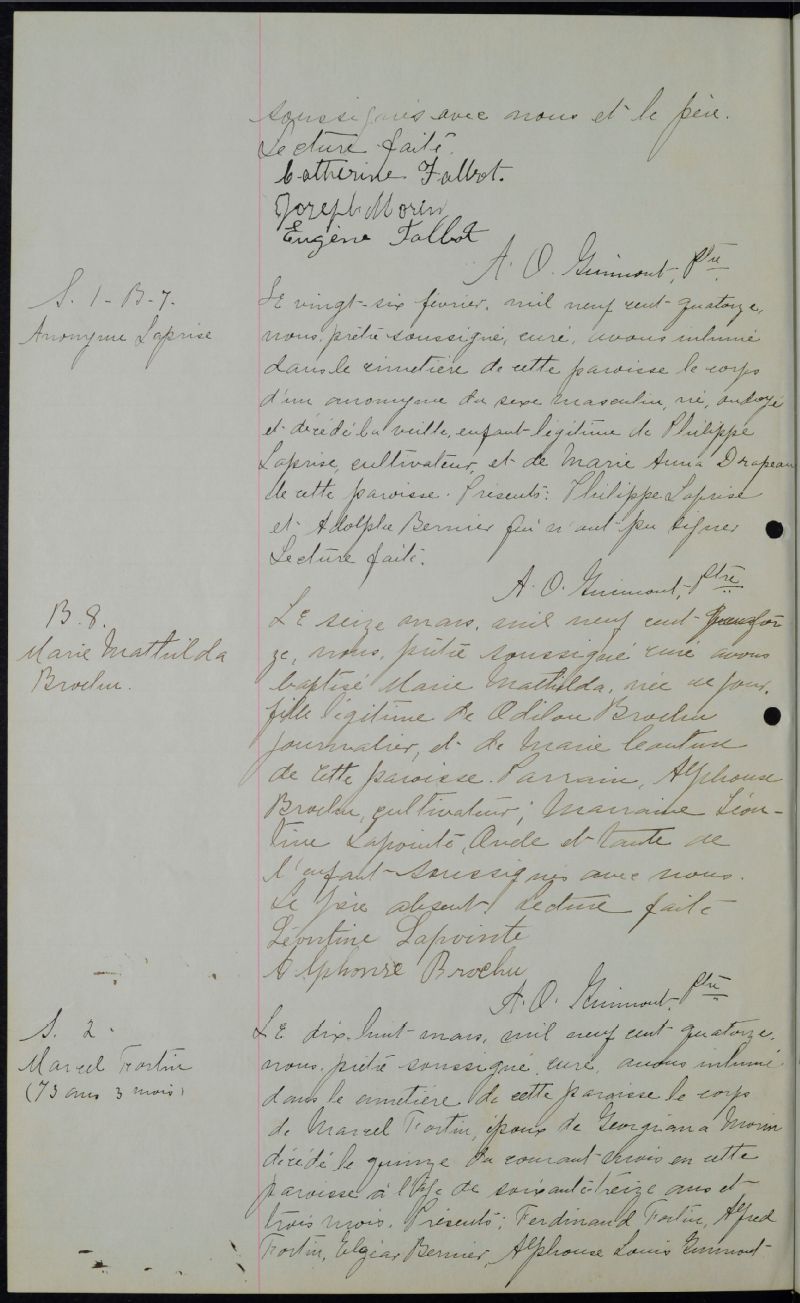 soussignés avec nous et le père.
Lecture faite.
Catherine Talbot.
Joseph Morin
Eugène Talbot
A. O. Guimont, Ptre
S. 1 - B - 7.
Anonyme Laprise
Le vingt-six février, mil neuf cent quatorze,
nous, prêtre soussigné, curé, avons inhumé
dans le cimetière de cette paroisse le corps
d'un anonyme du sexe masculin, né, ondoyé
et décédé la veille, enfant légitime de Philippe
Laprise, cultivateur, et de Marie Anna Drapeau
de cette paroisse. Présents: Philippe Laprise
et Adolphe Bernier qui n'ont pu signer
Lecture faite.
A. O. Guimont, Ptre
B. 8.
Marie Mathilda
Brochu.
Le seize mars, mil neuf cent quator
ze, nous, prêtre soussigné curé avons
baptisé Marie Mathilda, née ce jour,
fille légitime de Odilon Brochu
journalier, et de Marie Couture
de cette paroisse. Parrain, Alphonse
Brochu, cultivateur; Marraine Léon-
tine Lapointe, Oncle et tante de
l'enfant soussignés avec nous.
Le père absent. Lecture faite
Léontine Lapointe
Alphonse Brochu
A. O. Guimont, Ptre
S. 2.
Marcel Fortin
(73 ans 3 mois)
Le dix-huit mars, mil neuf cent quatorze,
nous, prêtre soussigné, curé, avons inhumé
dans le cimetière de cette paroisse le corps
de Marcel Fortin, époux de Georgiana Morin
décédé le quinze du courant mois en cette
paroisse à l'âge de soixante-treize ans et
trois mois. Présents; Ferdinand Fortin, Alfred
Fortin, Elzéar Bernier, Alphonse Louis Guimont